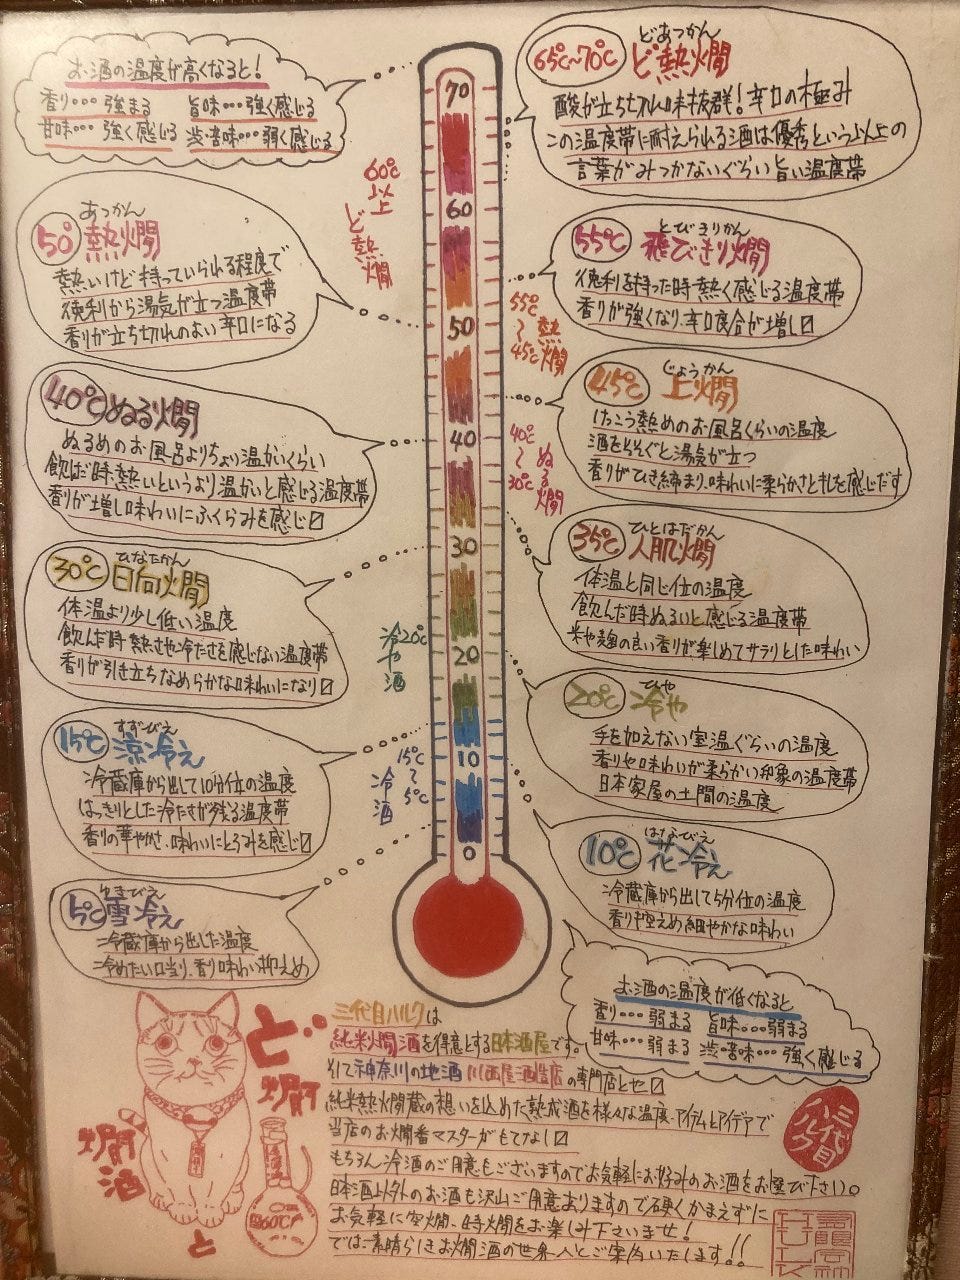 お酒の温度が高くなると!
香り・・・強まる 旨味・・・強く感じる
甘味・・・強く感じる 渋・苦味・・・弱く感じる
65℃~70℃
どあつかん
ど熱燗
酸が立ち切れ味抜群!辛口の極み
この温度帯に耐えられる酒は優秀という以上の
言葉がみつかないぐらい旨い温度帯
50°
あつかん
熱燗
熱いけど持っていられる程度で
徳利から湯気が立つ温度帯
香りが立ち切れのよい辛口になる
55℃
とびきりかん
飛びきり燗
徳利を持った時熱く感じる温度帯
香りが強くなり、辛口度合が増し〼
40℃ ぬる燗
ぬるめのお風呂よりちょい温かいくらい
飲んだ時、熱いというより温かいと感じる温度帯
香りが増し味わいにふくらみを感じ〼
45℃
じょうかん
上燗
けっこう熱めのお風呂くらいの温度
酒をそそぐと湯気が立つ
香りがひき締まり、味わいに柔らかさとキレを感じだす
30℃
ひなたかん
日向燗
体温より少し低い温度
飲んだ時熱さや冷たさを感じない温度帯
香りが引き立ちなめらかな味わいになり〼
35℃
ひとはだかん
人肌燗
体温と同じ位の温度
飲んだ時ぬるいと感じる温度帯
米や麹の良い香りが楽しめてサラリとした味わい
15℃
すずびえ
涼冷え
冷蔵庫から出して10分位の温度
はっきりとした冷たさが残る温度帯
香りの華やかさ、味わいにとろみを感じ〼
20℃
ひや
冷や
手を加えない室温ぐらいの温度
香りや味わいが柔らかい印象の温度帯
日本家屋の土間の温度
5℃
ゆきびえ
雪冷え
冷蔵庫から出した温度
冷めたい口当り、香り味わい抑えめ
10℃
はなびえ
花冷え
冷蔵庫から出して5分位の温度
香り控えめ細やかな味わい
70
60
50
40
30
20
10
0
60℃以上 ど熱燗
55℃~45℃ 熱燗
40℃~30℃ ぬる燗
20℃ 冷や酒
15℃~5℃ 冷酒
お酒の温度が低くなると
香り・・・弱まる 旨味・・・弱まる
甘味・・・弱まる 渋・苦味・・・強く感じる
ど燗
燗酒
と
60℃
三代目ハルクは
純米燗酒を得意とする日本酒屋です。
そして神奈川の地酒 川西屋酒造店の専門店とせ〼
純米熱燗蔵の想いを込めた熟成酒を様々な温度・アイテムとアイデアで
当店のお燗番マスターがもてなし〼
もちろん冷酒のご用意もございますのでお気軽にお好みのお酒をお選び下さい。
日本酒以外のお酒も沢山ご用意ありますので硬くかまえずに
お気軽に空燗、時燗をお楽しみ下さいませ!
では素晴らしきお燗酒の世界へとご案内いたします!!
三代目ハルク
HULK